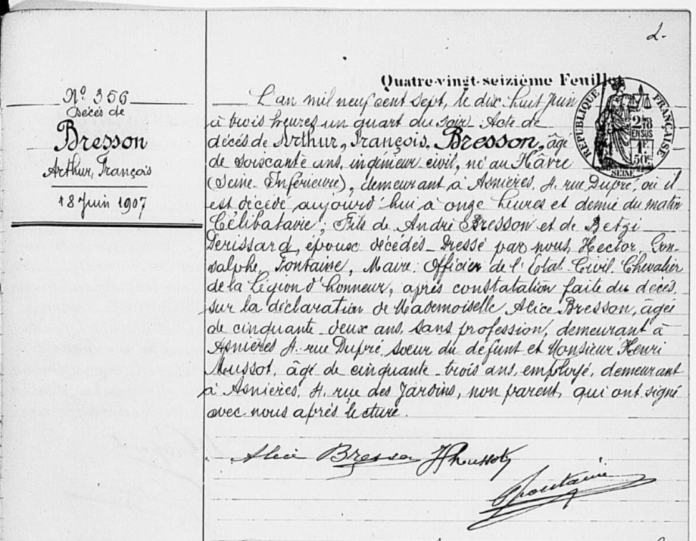 2.
Quatre-vingt-seizième Feuillet
N° 356
Décès de
Bresson
Arthur, François
18 Juin 1907
L'an mil neuf cent sept, le dix-huit Juin
à trois heures un quart du soir. Acte de
décès de Arthur, François, Bresson, âgé
de soixante ans, ingénieur civil, né au Hâvre
(Seine-Inférieure), demeurant à Asnières, 4. rue Dupré, où il
est décédé aujourd'hui à onze heures et demie du matin
Célibataire; Fils de André Bresson et de Betzi
Derissard, époux décédés. Dressé par nous, Hector, Gon-
salphe, Fontaine, Maire. Officier de l'Etat-Civil. Chevalier
de la Légion d'honneur, après constatation faite du décès,
sur la déclaration de Mademoiselle Alice Bresson, âgée
de cinquante-deux ans, sans profession, demeurant à
Asnières 4. rue Dupré, sœur du défunt et Monsieur Henri
Moussot, âgé de cinquante-trois ans, employé, demeurant
à Asnières, 4. rue des Jardins, non parent, qui ont signé
avec nous après lecture.
RÉPUBLIQUE FRANÇAISE
SEINE
Alice Bresson HMoussot
Fontaine